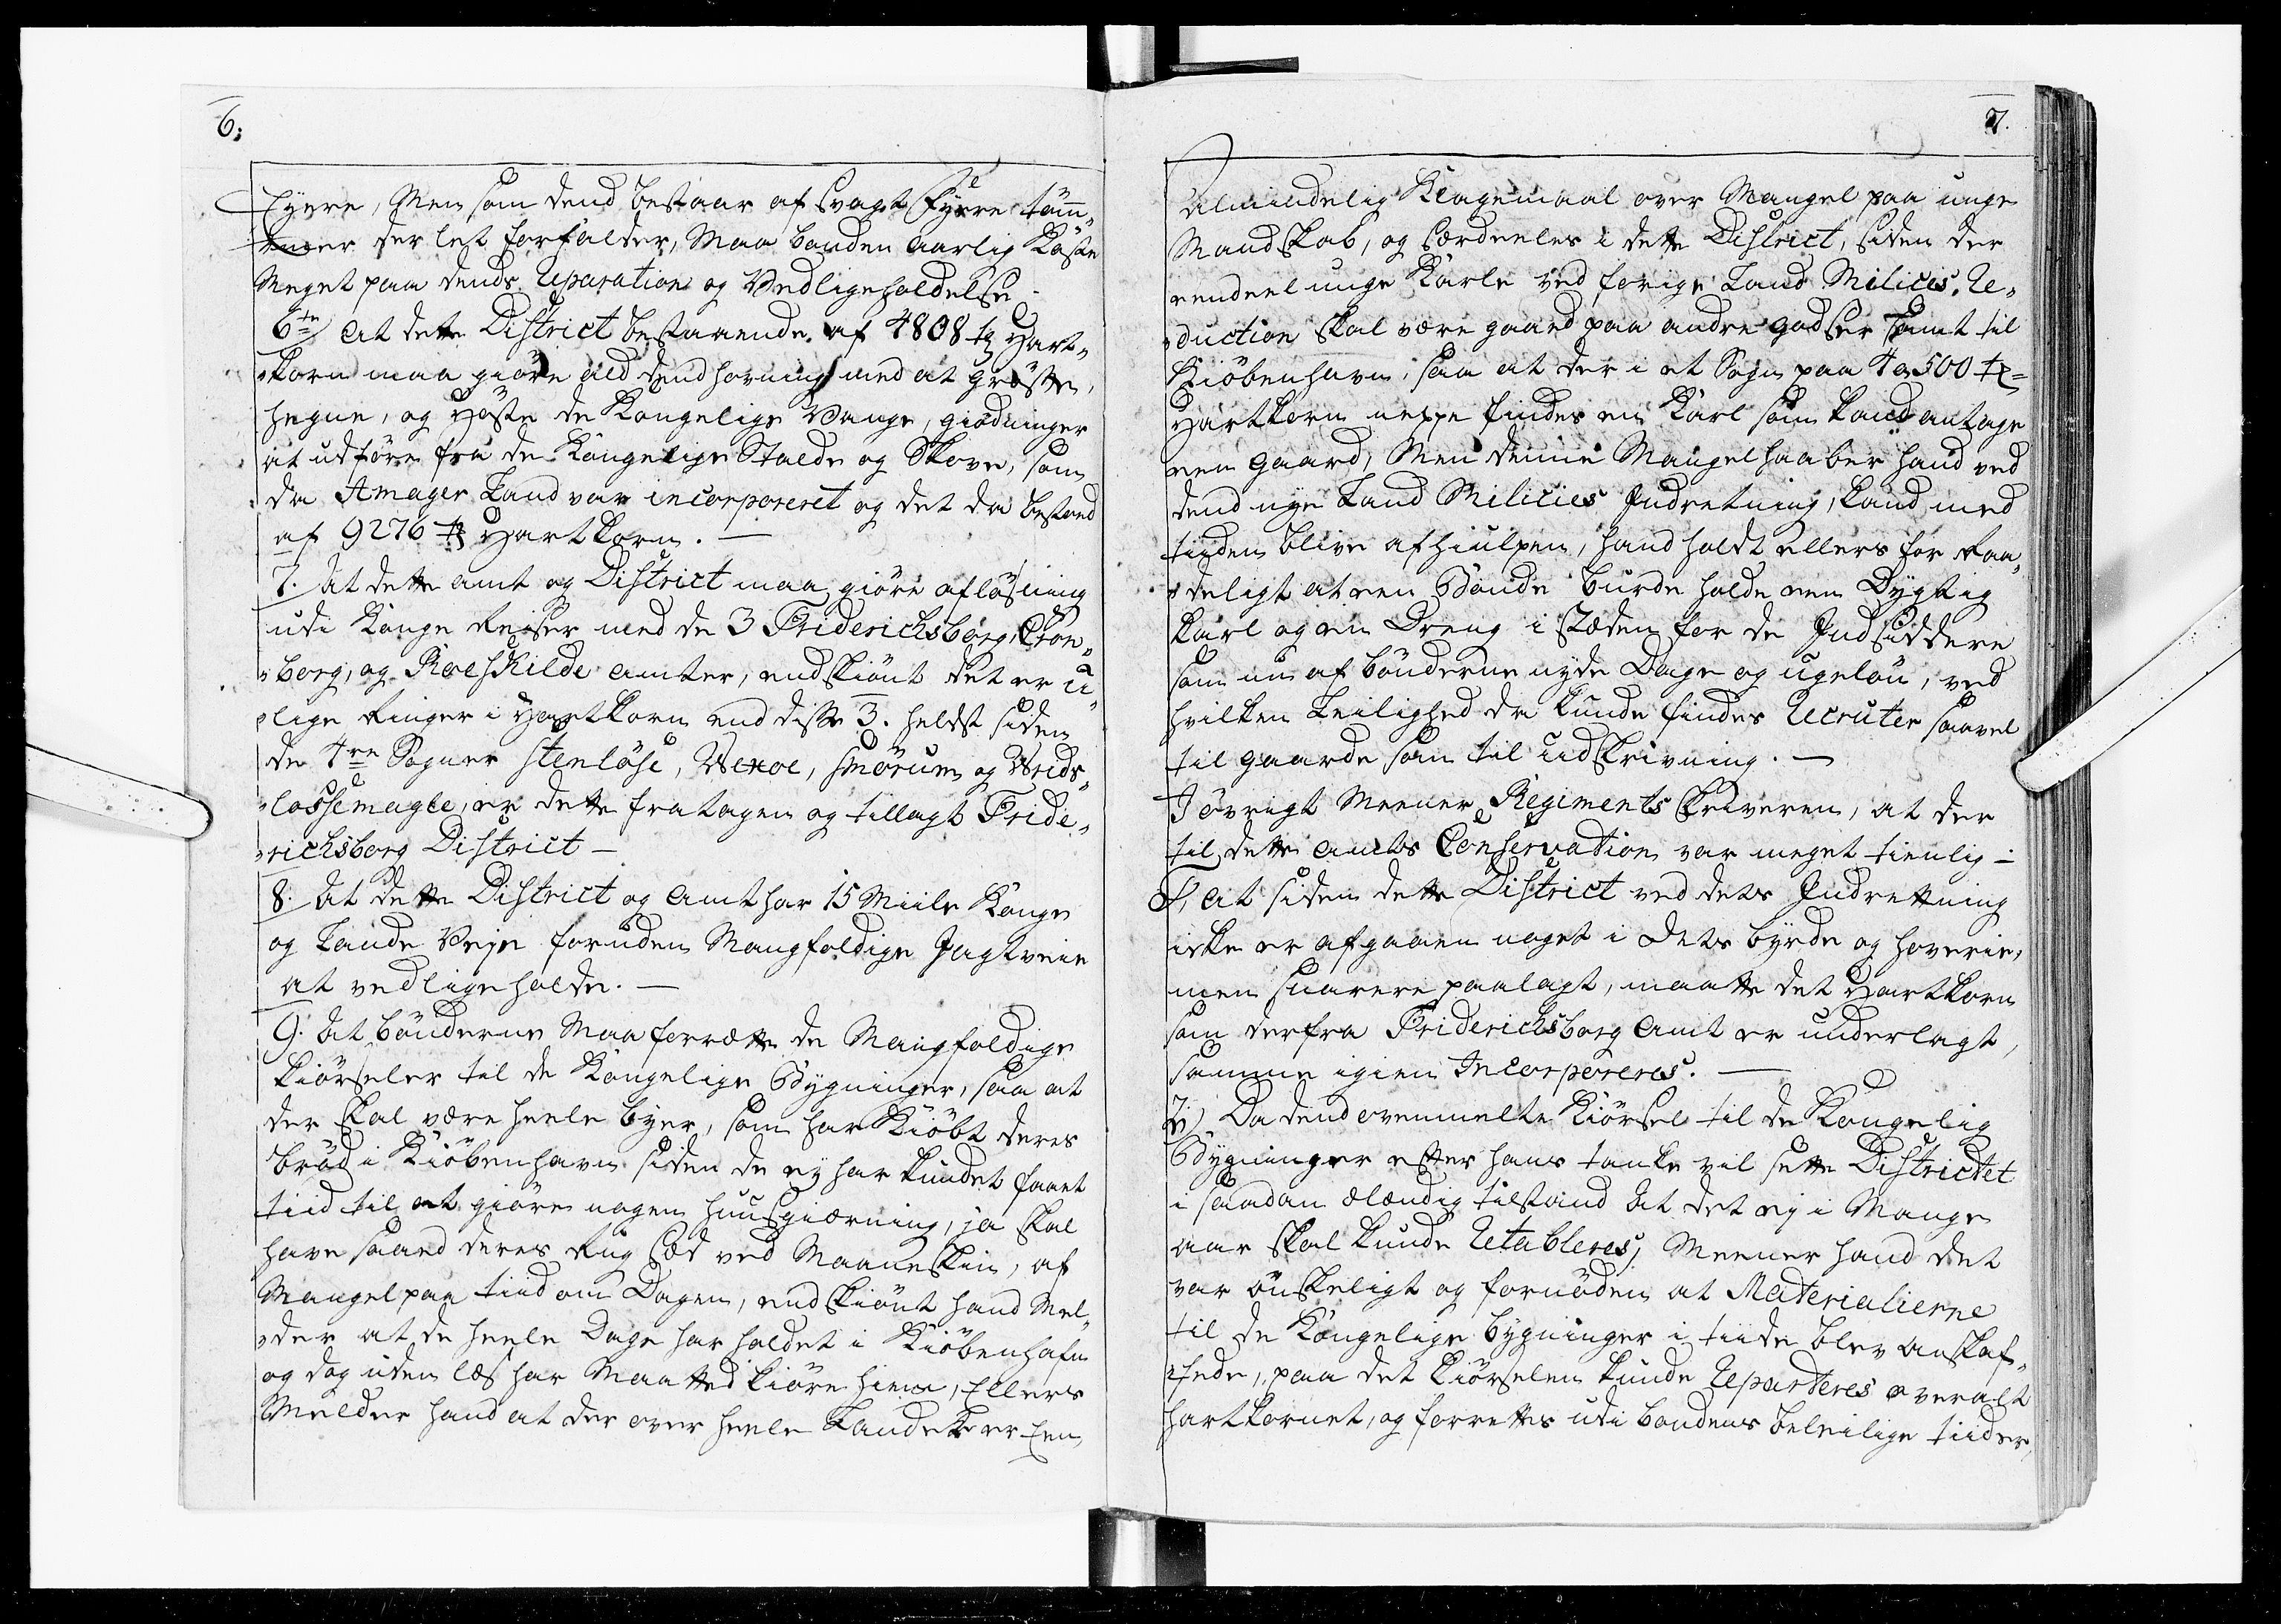 6;
Eyere, Men som dend bestaar af svagt Fyrre töm„
„mer der let forfalder, Maa bonden aarlig Kaste
Meget paa dends Reparation og Vedligeholdelse
6te/ At dette District bestaaende af 4808 tr Hart„
„korn maa giöre ald dend hovning med at gröfte,
hegne, og Höste de Kongelige Vange, giödninger
at udföre fra de Kongelige Stalde og Skove, som
da Amager Land var incorporeret og det da bestod
af 9276 tr Hartkorn. —
7. At dette amt og District maa giöre aflösning
udi Konge Reiser med de 3 Friderichsborg, Cron„
„borg, og Roeskilde amter, endskiönt det er u„
„lige Ringer i Hartkorn end disse 3. heldst siden
de 4re Sogner Stenlöse, Vexoe, Smörum og Weids„
„lossemagle, er dette fratagen og tillagt Fride„
„richsborg District —
8. At dette District og amt har 15 Miile Konge
og Lande Veje foruden Mangfoldige Jagtveie
at vedligeholde. —
9. At bönderne Maa forrette de Mangfoldige
kiörseler til de Kongelige Bygninger, saa at
der skal være heele byer, som har Kiöbt deres
bröd i Kiöbenhavn siden de ey har kundet faaet
tiid til at giöre nogen huusgierning, ja skal
have saaed deres Rug Sæd ved Maaneskin, af
Mangel paa tiid om Dagen, endskiönt hand Mel„
„der at de heele Dage har holdet i Kiöbenhafn
og dog uden læs har Maatted kiöre hiem, Ellers
Melder hand at der over heele Landet er Een
7.
Almindelig Klagemaal over Mangel paa unge
Mandskab, og særdeeles i dette District, siden der
eendeel unge Karle ved forige Land Milices Re„
„duction skal være gaaed paa andre godser samt til
Kiöbenhavn, saa at der i et Sogn paa 4 a 500 tr
Hartkorn neppe findes en Karl som kand antage
een gaard, Men denne Mangel haaber hand ved
dend nye Land Milicies Indretning, kand med
tiiden blive afhiulpen, hand holdt ellers for raa„
„deligt at een Bonde burde holde een Dygtig
karl og en Dreng i stæden for de Indsiddere
som nu af bönderne nyde Dage og ugelön, ved
hvilken Leilighed da kunde findes Recruter saavel
til gaarde som til udskrivning. —
I övrigt Meener Regiments skriveren, at der
til dette amts Conservation var meget tienlig —
1, at siden dette District ved dets Indrettning
icke er afgaaen noget i dets byrde og hoverie,
men snarere paalagt, maatte det Hartkorn
som derfra Friderichsborg amt er underlagt,
samme igien Incorporeres. —
2) Da dend ovenmelte Kiörsel til de Kongelig
Bygninger efter hans tanke vil sette Districtet
i saadan elændig tilstand at det ey i Mange
aar skal kunde Retableres, Meener hand det
var önskeligt og fornöden at Materialierne
til de Kongelige bygninger i tiide blev anskaf„
„fede, paa det kiörselen kunde Reparteres overalt
hartkornet, og forrettes udi bondens beleilige tiider,